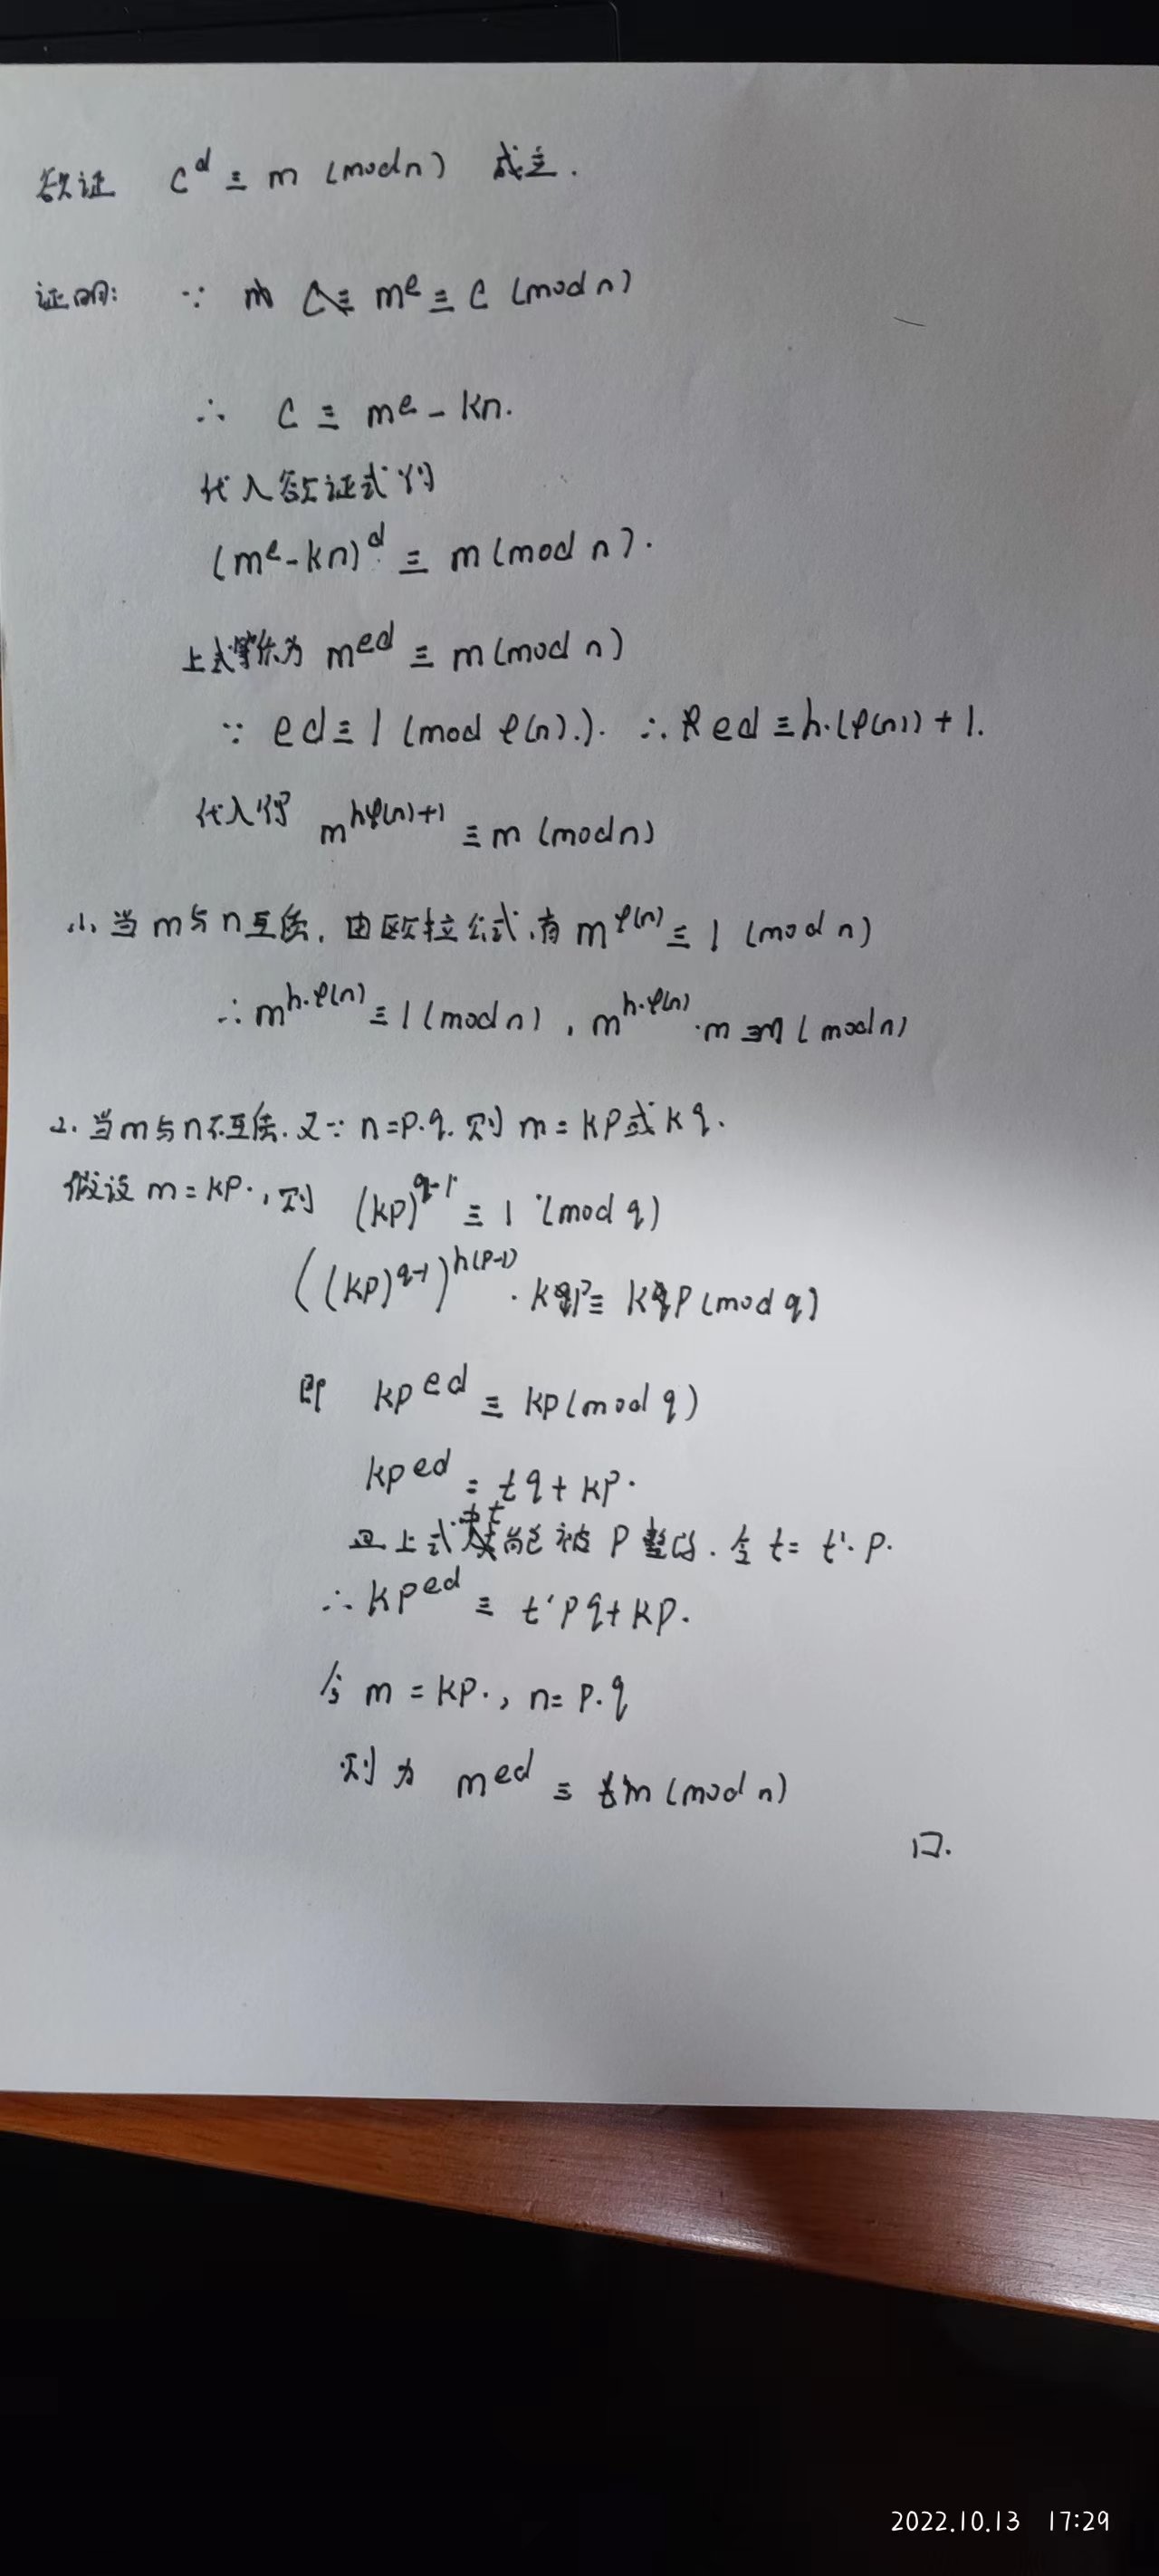 欲证 c^d ≡ m (mod n) 成立.
证明: ∵ m^e ≡ c (mod n)
∴ c ≡ m^e - kn.
代入欲证式得
(m^e - kn)^d ≡ m (mod n).
上式等价为 m^ed ≡ m (mod n)
∵ ed ≡ 1 (mod φ(n)). ∴ ed ≡ h·(φ(n)) + 1.
代入得 m^hφ(n)+1 ≡ m (mod n)
1. 当 m 与 n 互质, 由欧拉公式, 有 m^φ(n) ≡ 1 (mod n)
∴ m^h·φ(n) ≡ 1 (mod n), m^h·φ(n) · m ≡ m (mod n)
2. 当 m 与 n 不互质. 又∵ n = p·q. 则 m = kp 或 kq.
假设 m = kp, 则 (kp)^q-1 ≡ 1 (mod q)
((kp)^q-1)^h(p-1) · kp ≡ kp (mod q)
即 kp^ed ≡ kp (mod q)
kp^ed = tq + kp.
且上式中t能被 p 整除. 令 t = t'·p.
∴ kp^ed ≡ t'pq + kp.
m = kp, n = p·q
则为 m^ed ≡ m (mod n)
□.
2022.10.13 17:29